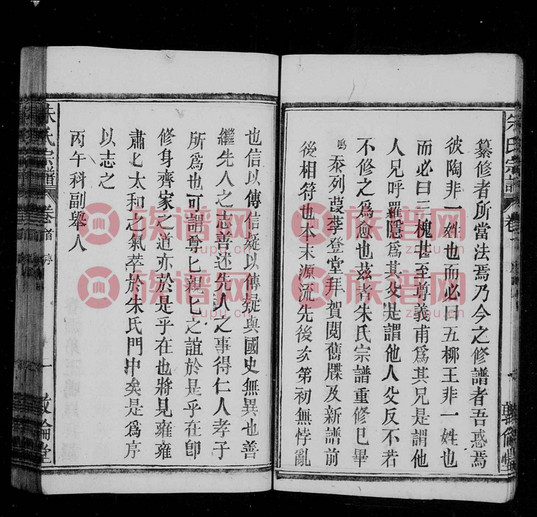 纂修者所當法焉乃今之修譜者吾惑焉
彼陶非一姓也而必曰五柳王非一姓也
而必曰三槐甚至
義甫為其兄是謂他
人兄呼羅隱為其
是謂他人父反不若
不修之為愈也茲朱氏宗譜重修已畢
忝列葭莩登堂拜賀閱舊牒及新譜前
後相符也本末源流先後亥第初無悖亂
也信以傳信疑以傳疑與國史無異也善
繼先人之志善述先人之事得仁人孝子
所為也可謂尊
親
之誼於是乎在即
修身齊家之道亦於是乎在也將見雍雍
肅
太和之氣萃於朱氏門中矣是為序
以志之
丙午科副舉人
朱氏宗譜
卷首
序
一
敦倫堂
族谱网
zupu.cn